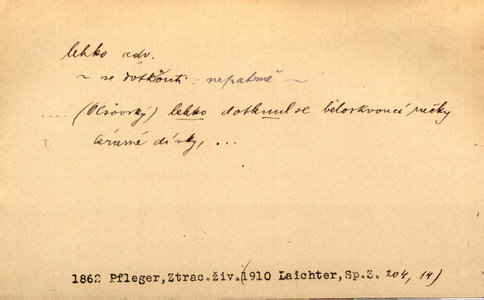 lehko adv.
~ se dotknouti - nepatrně ~
.... (Olšovský) lehko dotknul se běloskvoucí ručky
krásné dívky, ...
1862 Pfleger, Ztrac.živ.(1910 Laichter, Sp.Z. 204, 14)